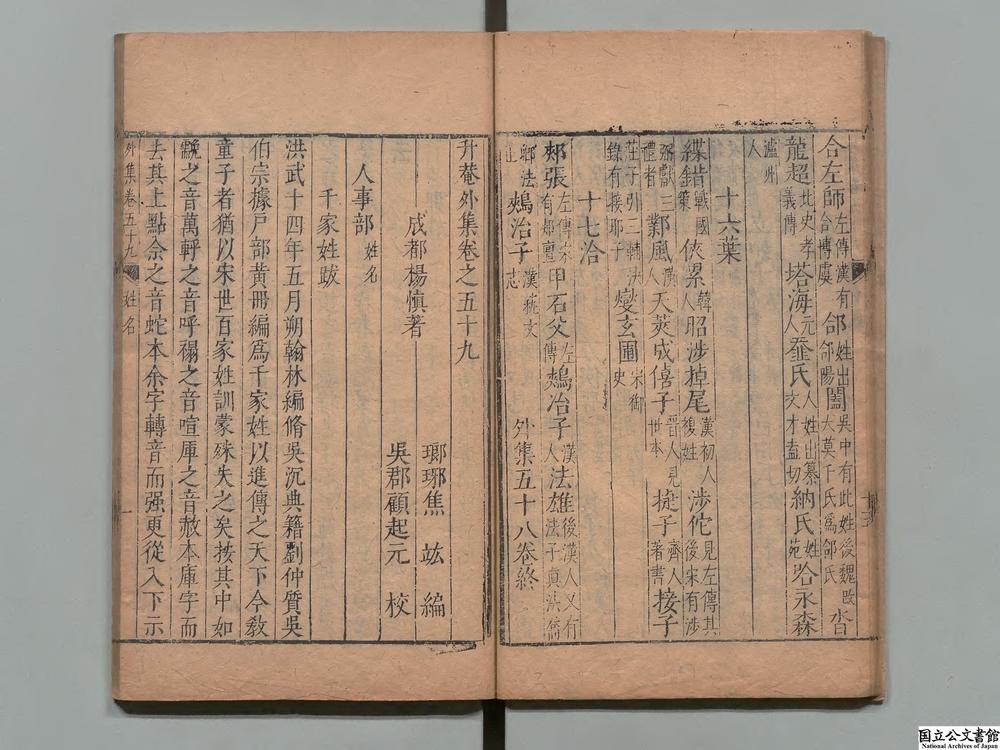 合左師左傳漢有合傅虞郃姓出郃陽闔吳中有此姓後魏改大莫干氏爲郃氏沓
龍超北史孝義傳塔海元人𡊮氏人姓出纂文才盍切納氏姓苑㗳永森
瀘州人
十六葉
緤錯戰國策俠累韓人昭涉掉尾漢初人複姓涉佗見左傳其後宋有涉
弼獻三禮者鄴風漢人天莢成僖子晋人見世本㨗子齊人著書接子
莊子引二輔決錄有接耶子燮玄圃宋御史
十七洽
郟張左傳宋有郟亹甲石父左傳鵊冶子漢人法雄後漢人又有法子真法裔
鄉法止鵊治子漢藝文志外集五十八卷終
升菴外集卷之五十九
成都楊慎著
瑯琊焦竑編
吳郡顧起元校
人事部姓名
千家姓跋
洪武十四年五月朔翰林編脩吳沉典籍劉仲質吳
伯宗據戶部黃冊編爲千家姓以進傳之天下今敎
童子者猶以宋世百家姓訓蒙殊失之矣按其中如
𩇕之音萬軤之音呼禤之音喧厙之音赦本庫字而
去其上點佘之音蛇本余字轉音而强更從入下示
外集卷五十九
姓名
一
国立公文書館
National Archives of Japan